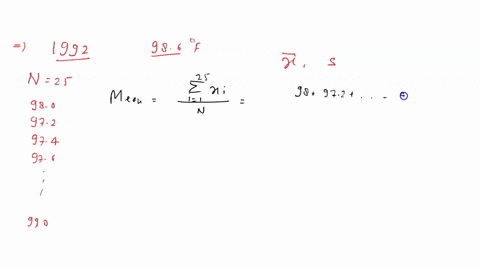 =) 1992 98.6 °F
x̄, s
N = 25
Mean = ∑ i=1 25 xi / N = 98 + 97.2 + . . . - +
98.0
97.2
97.4
97.6
;
;
99.0